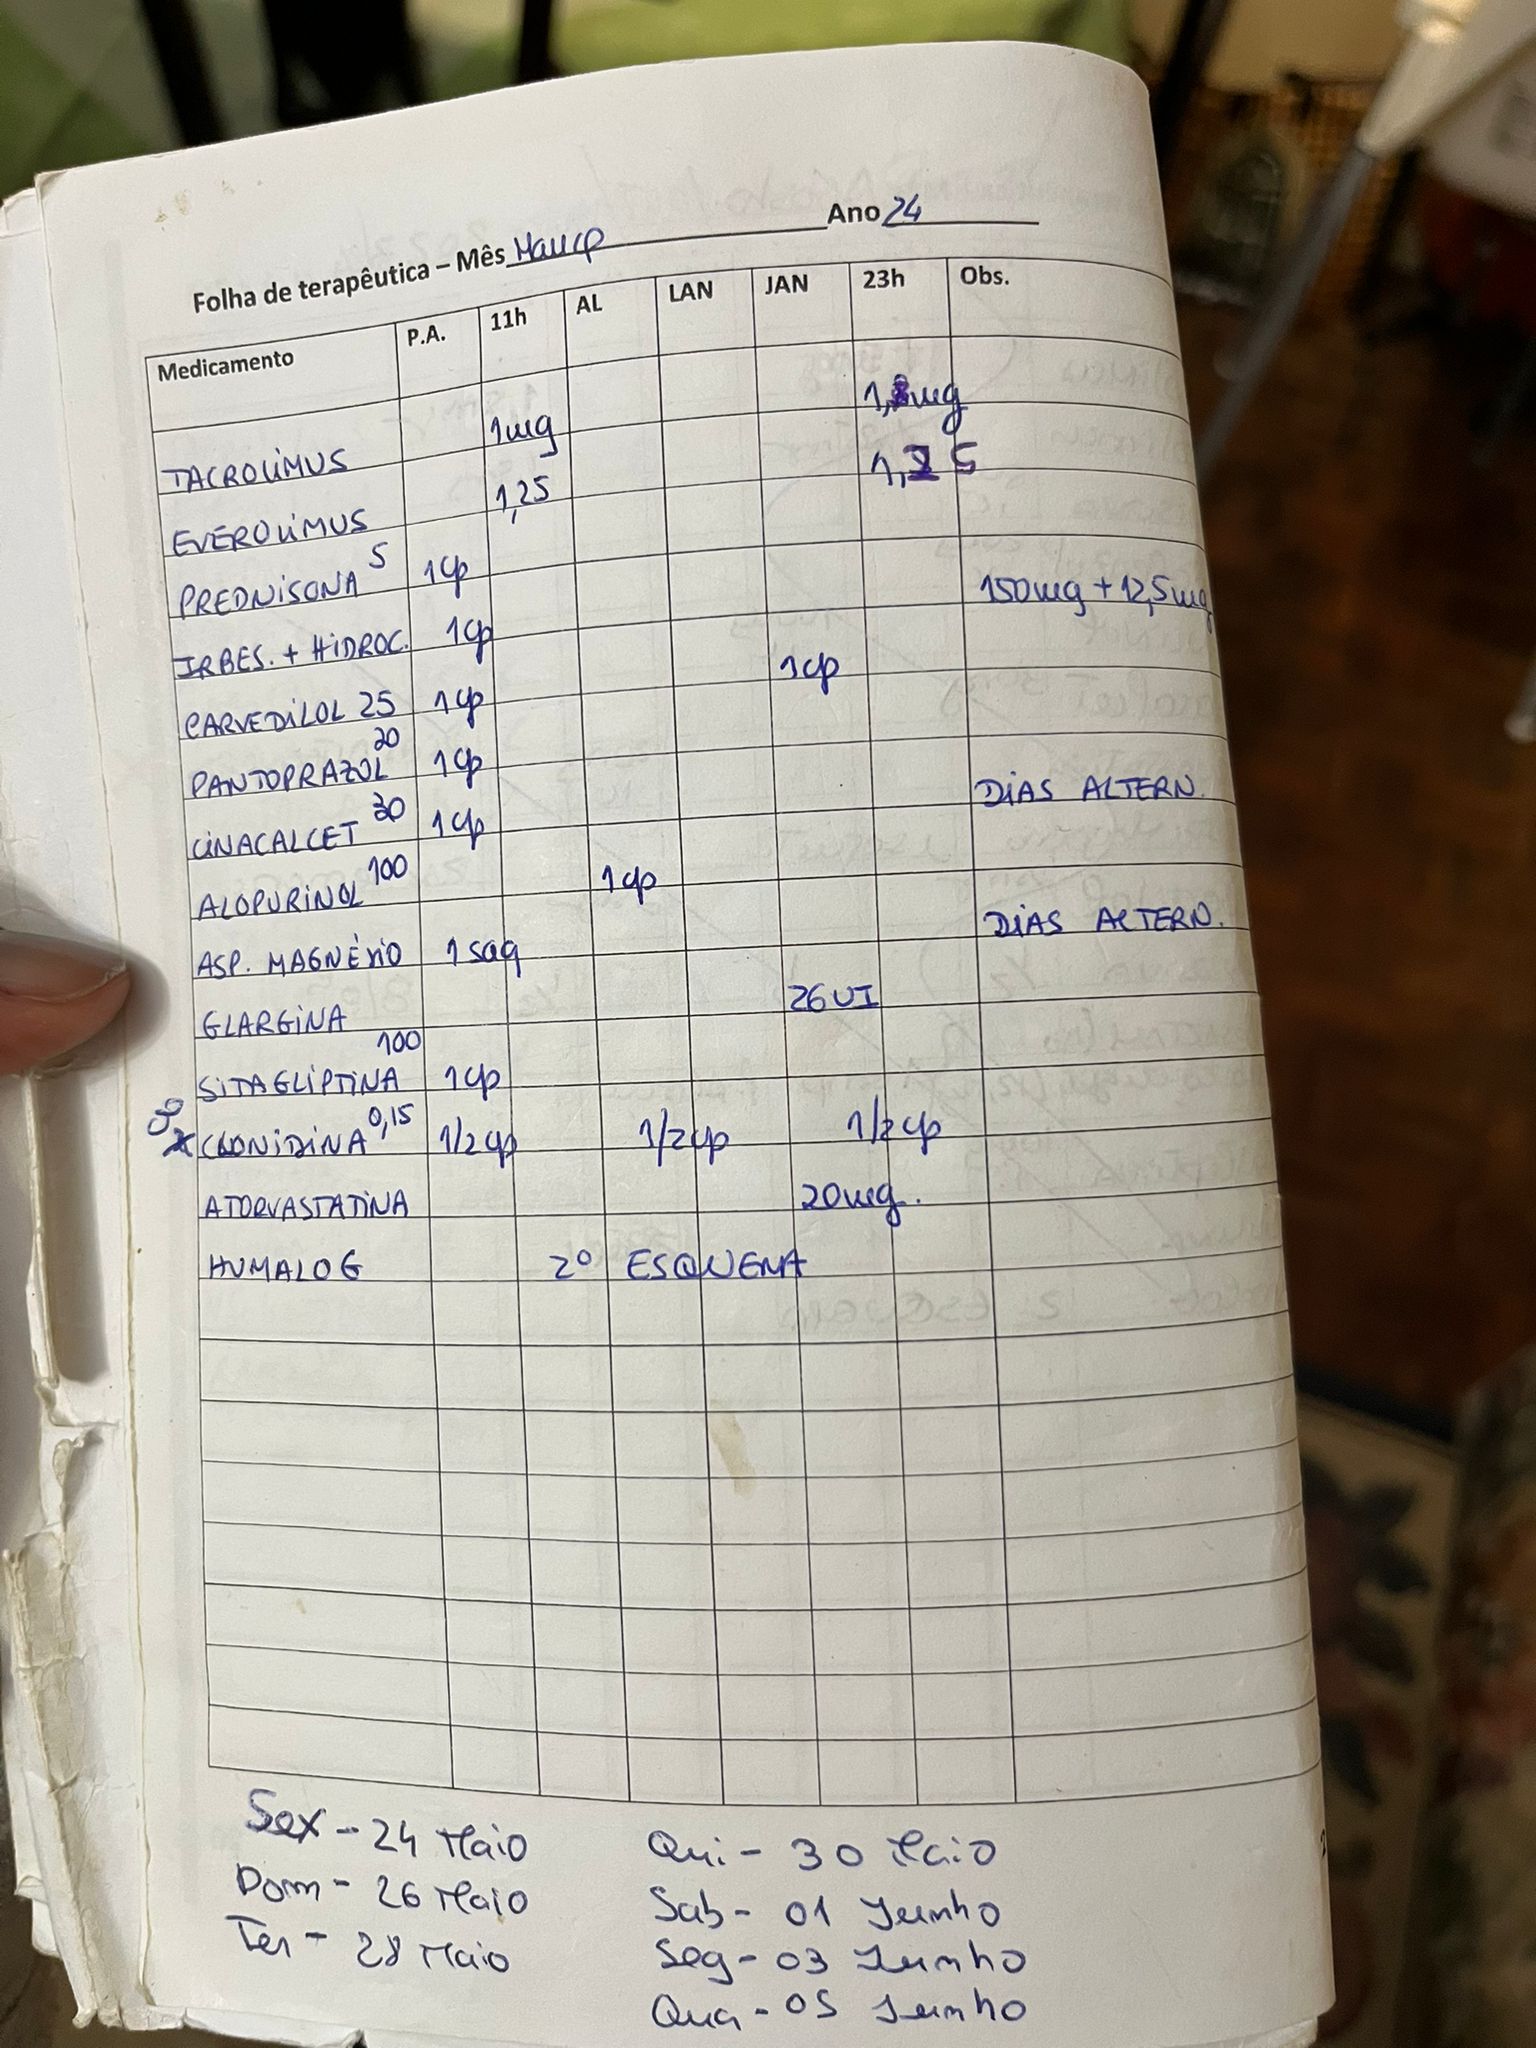 Folha de terapêutica – Mês Março Ano 24
Medicamento P.A. 11h AL LAN JAN 23h Obs.
TACROLIMUS 1mg
EVEROLIMUS 1,25 1,25
PREDNISONA 5 1cp
IRBES. + HIDROC. 1cp 150mg + 12,5mg
CARVEDILOL 25 1cp 1cp
PANTOPRAZOL 20 1cp
CINACALCET 30 1cp DIAS ALTERN.
ALOPURINOL 100 1cp
ASP. MAGNÉSIO 1 saq DIAS ALTERN.
GLARGINA 26 UI
SITAGLIPTINA 100 1cp
CLONIDINA 0,15 1/2 cp 1/2 cp 1/2 cp
ATORVASTATINA 20mg.
HUMALOG 2º ESQUEMA
Sex - 24 Maio
Dom - 26 Maio
Ter - 28 Maio
Qui - 30 Maio
Sab - 01 Junho
Seg - 03 Junho
Qua - 05 Junho